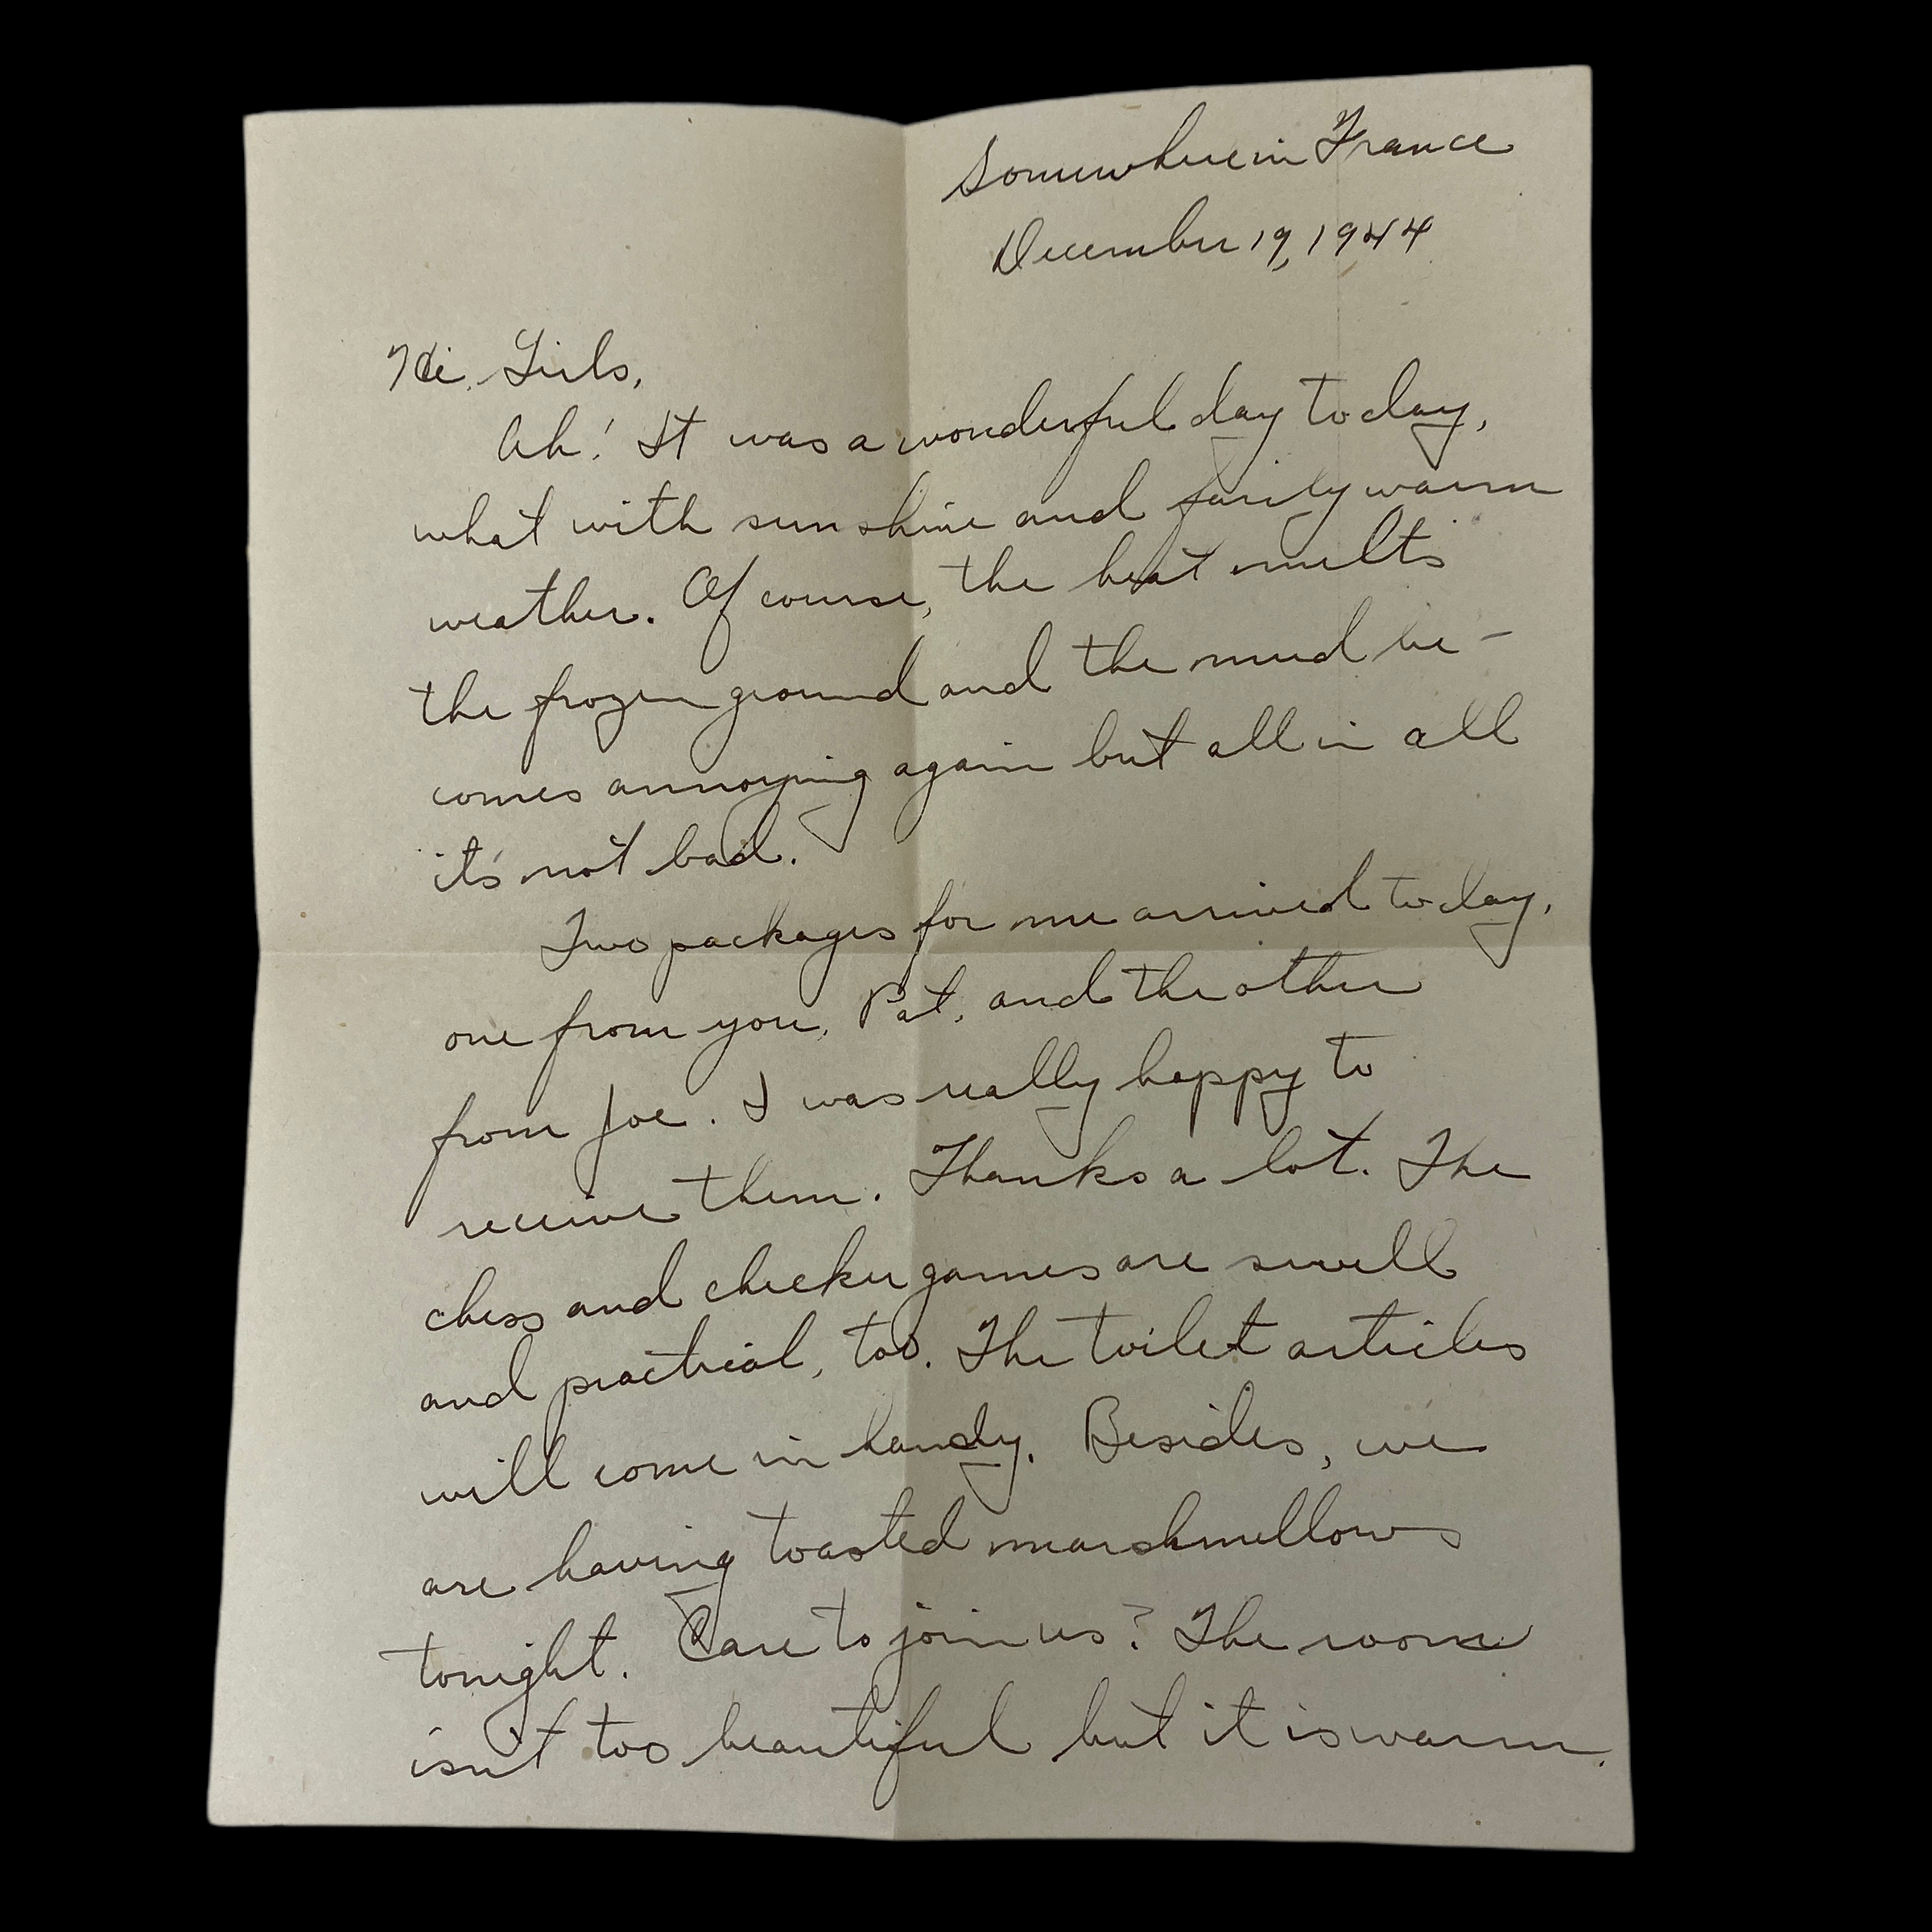 Somewhere in France
December 19, 1944
Hi Girls,
Ah! It was a wonderful day today,
what with sunshine and fairly warm
weather. Of course, the heat melts
the frozen ground and the mud be-
comes annoying again but all in all
it's not bad.
Two packages for me arrived today,
one from you, Pat, and the other
from Joe. I was really happy to
receive them. Thanks a lot. The
chess and checker games are swell
and practical, too. The toilet articles
will come in handy. Besides, we
are having toasted marshmellows
tonight. Care to join us? The room
isn't too beautiful but it is warm.